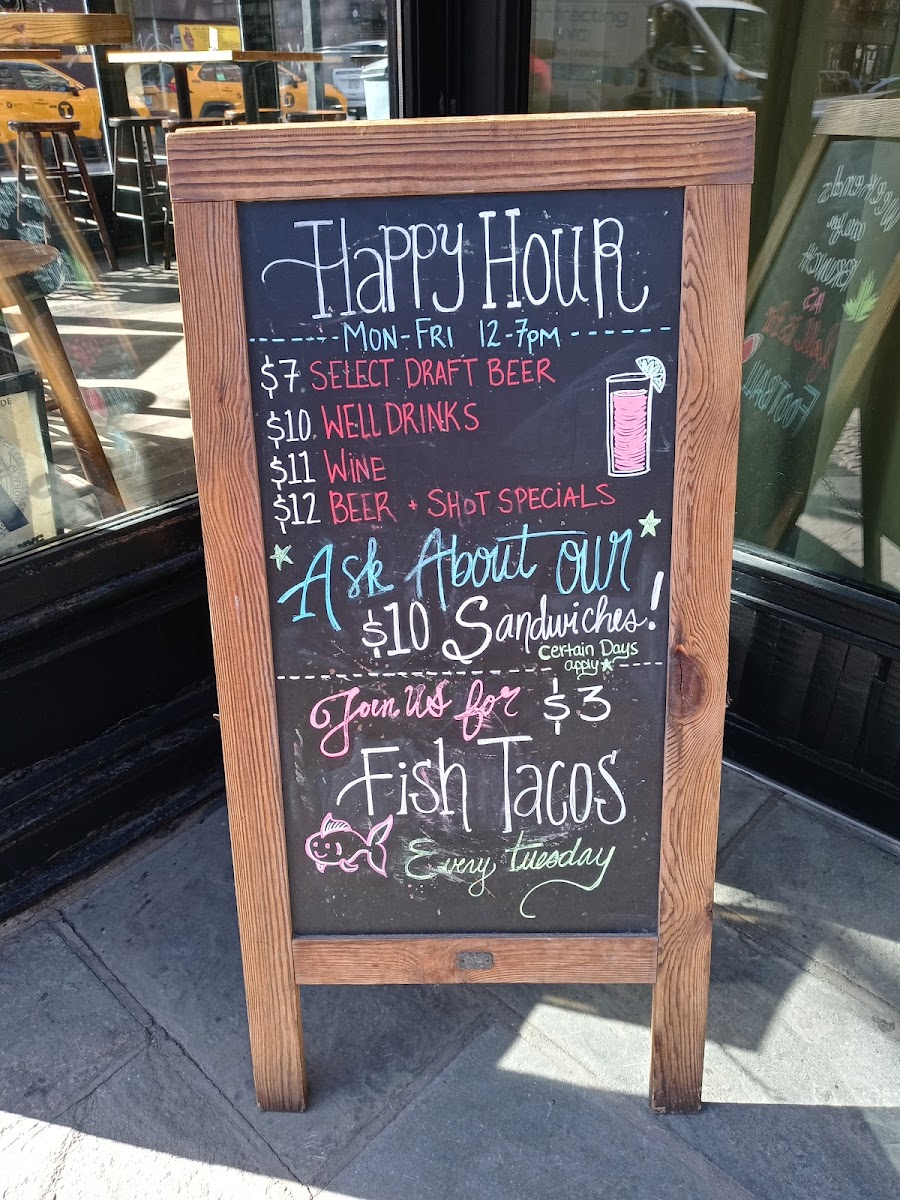 Happy Hour
MON-FRI 12-7pm
$7 SELECT DRAFT BEER
$10 WELL DRINKS
$11 WINE
$12 BEER + SHOT SPECIALS
Ask About our
$10 Sandwiches!
Certain Days
apply
Join us for $3
Fish Tacos
Every tuesday
Weekends
BRUNCH
FOOTBALL